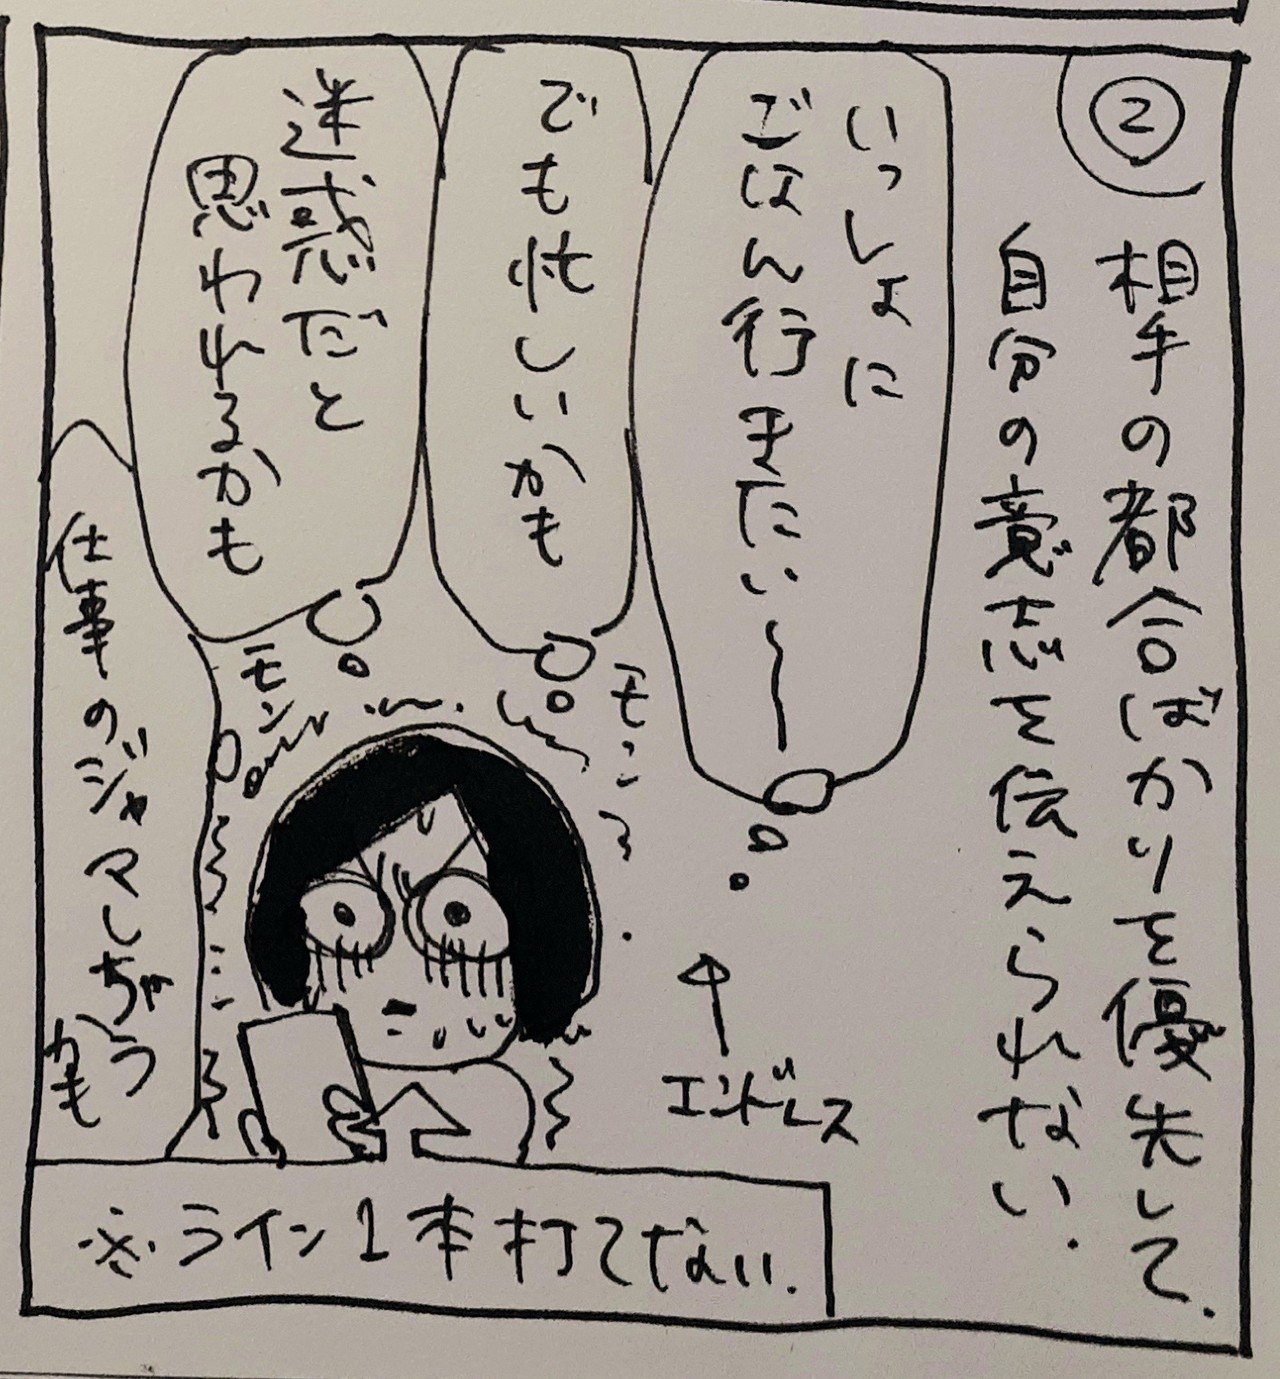 ②
相手の都合ばかりを優先して、
自分の意志を伝えられない.
いっしょに
ごはん行きたい〜
でも忙しいかも
迷惑だと
思われるかも
仕事のジャマしちゃう
かも
モンモン
モンモン
エンドレス
※.ライン1本打てない.